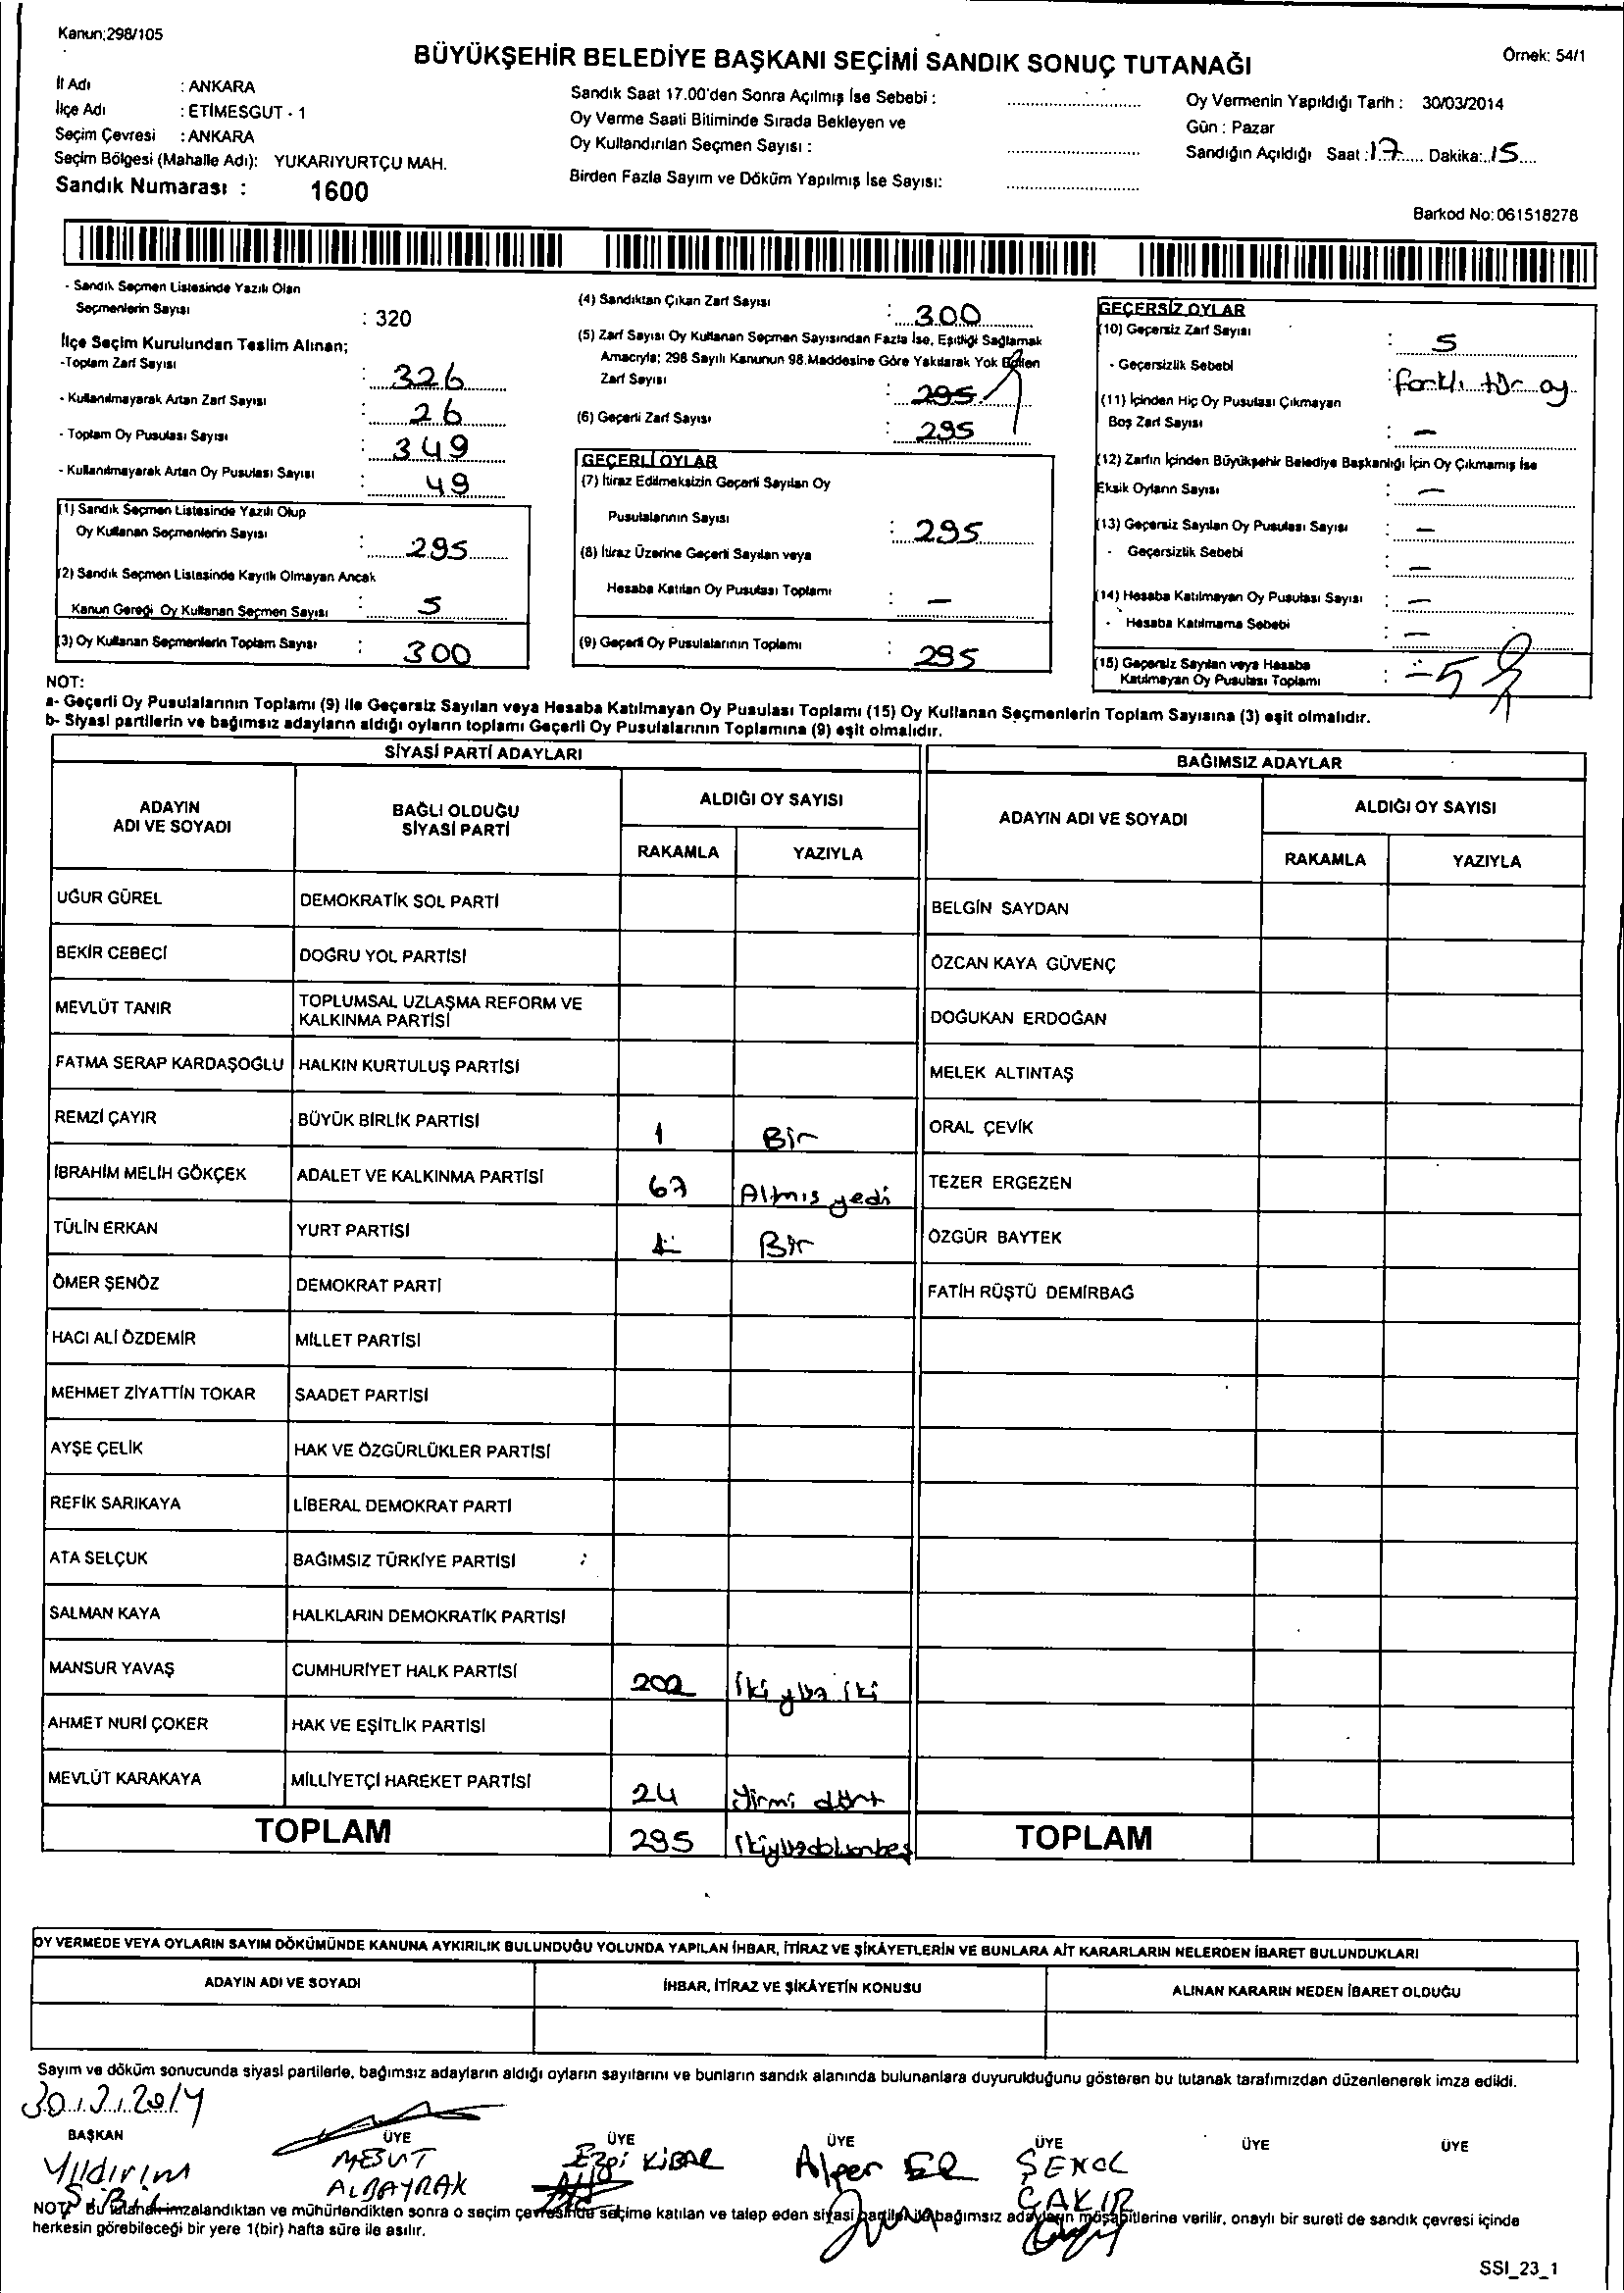 Kanun;298/105
BÜYÜKŞEHİR BELEDİYE BAŞKANI SEÇİMİ SANDIK SONUÇ TUTANAĞI
Örnek: 54/1
İl Adı : ANKARA
İlçe Adı : ETİMESGUT - 1
Seçim Çevresi : ANKARA
Seçim Bölgesi (Mahalle Adı): YUKARIYURTÇU MAH.
Sandık Numarası : 1600
Sandık Saat 17.00'den Sonra Açılmış İse Sebebi :
Oy Verme Saati Bitiminde Sırada Bekleyen ve
Oy Kullandırılan Seçmen Sayısı :
Birden Fazla Sayım ve Döküm Yapılmış İse Sayısı:
Oy Vermenin Yapıldığı Tarih : 30/03/2014
Gün : Pazar
Sandığın Açıldığı Saat : 17 Dakika: 15
Barkod No: 061518278
- Sandık Seçmen Listesinde Yazılı Olan
Seçmenlerin Sayısı : 320
İlçe Seçim Kurulundan Teslim Alınan;
-Toplam Zarf Sayısı : 326
- Kullanılmayarak Artan Zarf Sayısı : 26
- Toplam Oy Pusulası Sayısı : 349
- Kullanılmayarak Artan Oy Pusulası Sayısı : 49
(1) Sandık Seçmen Listesinde Yazılı Olup
Oy Kullanan Seçmenlerin Sayısı : 295
(2) Sandık Seçmen Listesinde Kayıtlı Olmayan Ancak
Kanun Gereği Oy Kullanan Seçmen Sayısı : 5
(3) Oy Kullanan Seçmenlerin Toplam Sayısı : 300
(4) Sandıktan Çıkan Zarf Sayısı : 300
(5) Zarf Sayısı Oy Kullanan Seçmen Sayısından Fazla İse, Eşitliği Sağlamak
Amacıyla; 298 Sayılı Kanunun 98.Maddesine Göre Yakılarak Yok Edilen
Zarf Sayısı : 295
(6) Geçerli Zarf Sayısı : 295
GEÇERLİ OYLAR
(7) İtiraz Edilmeksizin Geçerli Sayılan Oy
Pusulalarının Sayısı : 295
(8) İtiraz Üzerine Geçerli Sayılan veya
Hesaba Katılan Oy Pusulası Toplamı : -
(9) Geçerli Oy Pusulalarının Toplamı : 295
GEÇERSİZ OYLAR
(10) Geçersiz Zarf Sayısı : 5
- Geçersizlik Sebebi : farklı tür oy
(11) İçinden Hiç Oy Pusulası Çıkmayan
Boş Zarf Sayısı : -
(12) Zarfın İçinden Büyükşehir Belediye Başkanlığı İçin Oy Çıkmamış İse
Eksik Oyların Sayısı : -
(13) Geçersiz Sayılan Oy Pusulası Sayısı : -
- Geçersizlik Sebebi : -
(14) Hesaba Katılmayan Oy Pusulası Sayısı : -
- Hesaba Katılmama Sebebi : -
(15) Geçersiz Sayılan veya Hesaba
Katılmayan Oy Pusulası Toplamı : - 5
NOT:
a- Geçerli Oy Pusulalarının Toplamı (9) ile Geçersiz Sayılan veya Hesaba Katılmayan Oy Pusulası Toplamı (15) Oy Kullanan Seçmenlerin Toplam Sayısına (3) eşit olmalıdır.
b- Siyasi partilerin ve bağımsız adayların aldığı oyların toplamı Geçerli Oy Pusulalarının Toplamına (9) eşit olmalıdır.
SİYASİ PARTİ ADAYLARI
BAĞIMSIZ ADAYLAR
ADAYIN ADI VE SOYADI
BAĞLI OLDUĞU SİYASİ PARTİ
ALDIĞI OY SAYISI
RAKAMLA YAZIYLA
ADAYIN ADI VE SOYADI
ALDIĞI OY SAYISI
RAKAMLA YAZIYLA
UĞUR GÜREL DEMOKRATİK SOL PARTİ BELGİN SAYDAN
BEKİR CEBECİ DOĞRU YOL PARTİSİ ÖZCAN KAYA GÜVENÇ
MEVLÜT TANIR TOPLUMSAL UZLAŞMA REFORM VE KALKINMA PARTİSİ DOĞUKAN ERDOĞAN
FATMA SERAP KARDAŞOĞLU HALKIN KURTULUŞ PARTİSİ MELEK ALTINTAŞ
REMZİ ÇAYIR BÜYÜK BİRLİK PARTİSİ 1 Bir ORAL ÇEVİK
İBRAHİM MELİH GÖKÇEK ADALET VE KALKINMA PARTİSİ 67 Altmıs yedi TEZER ERGEZEN
TÜLİN ERKAN YURT PARTİSİ 1 Bir ÖZGÜR BAYTEK
ÖMER ŞENÖZ DEMOKRAT PARTİ FATİH RÜŞTÜ DEMİRBAĞ
HACI ALİ ÖZDEMİR MİLLET PARTİSİ
MEHMET ZİYATTİN TOKAR SAADET PARTİSİ
AYŞE ÇELİK HAK VE ÖZGÜRLÜKLER PARTİSİ
REFİK SARIKAYA LİBERAL DEMOKRAT PARTİ
ATA SELÇUK BAĞIMSIZ TÜRKİYE PARTİSİ
SALMAN KAYA HALKLARIN DEMOKRATİK PARTİSİ
MANSUR YAVAŞ CUMHURİYET HALK PARTİSİ 202 İki yüz iki
AHMET NURİ ÇOKER HAK VE EŞİTLİK PARTİSİ
MEVLÜT KARAKAYA MİLLİYETÇİ HAREKET PARTİSİ 24 yirmi dört
TOPLAM 295 İkiyüzdoksanbeş TOPLAM
OY VERMEDE VEYA OYLARIN SAYIM DÖKÜMÜNDE KANUNA AYKIRILIK BULUNDUĞU YOLUNDA YAPILAN İHBAR, İTİRAZ VE ŞİKÂYETLERİN VE BUNLARA AİT KARARLARIN NELERDEN İBARET BULUNDUKLARI
ADAYIN ADI VE SOYADI İHBAR, İTİRAZ VE ŞİKÂYETİN KONUSU ALINAN KARARIN NEDEN İBARET OLDUĞU
Sayım ve döküm sonucunda siyasi partilerle, bağımsız adayların aldığı oyların sayılarını ve bunların sandık alanında bulunanlara duyurulduğunu gösteren bu tutanak tarafımızdan düzenlenerek imza edildi.
30.3.2014
BAŞKAN ÜYE ÜYE ÜYE ÜYE ÜYE ÜYE
Yıldırım MESUT Ezgi KİBAR Alper ER ŞENOL
ALBAYRAK ÇAKIR
NOT: Bu tutanak imzalandıktan ve mühürlendikten sonra o seçim çevresinde seçime katılan ve talep eden siyasi partiler ile bağımsız adayların müşahitlerine verilir, onaylı bir sureti de sandık çevresi içinde
herkesin görebileceği bir yere 1(bir) hafta süre ile asılır.
SSI_23_1